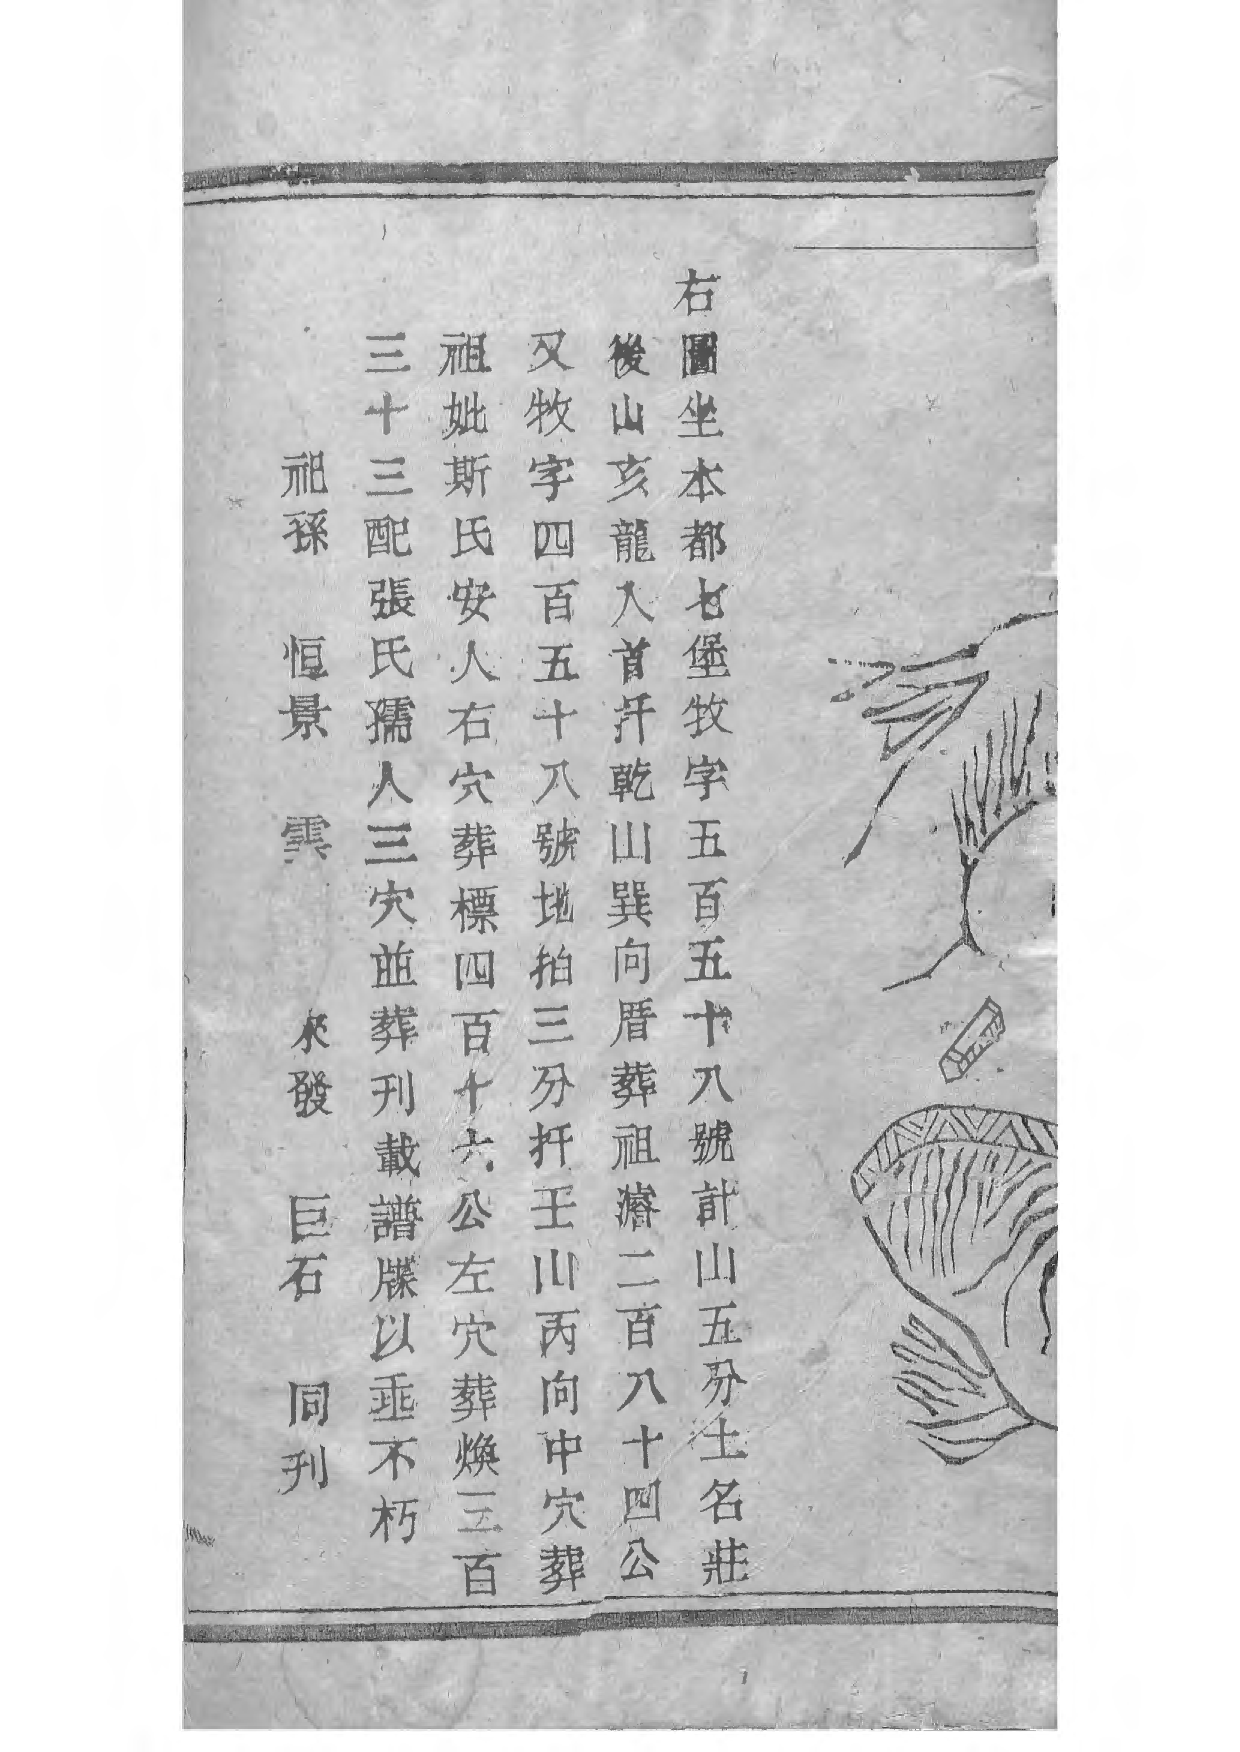 右圖坐本都七堡牧字五百五十八號計山五分土名莊
後山亥龍入首扦乾山巽向厝葬祖濬二百八十四公
又牧字四百五十八號地拍三分扦壬山丙向中穴葬
祖妣斯氏安人右穴葬標四百十六公左穴葬煥三百
三十三配張氏孺人三穴並葬刊載譜牒以垂不朽
祀孫 恒景 雲 永發 巨石 同刊